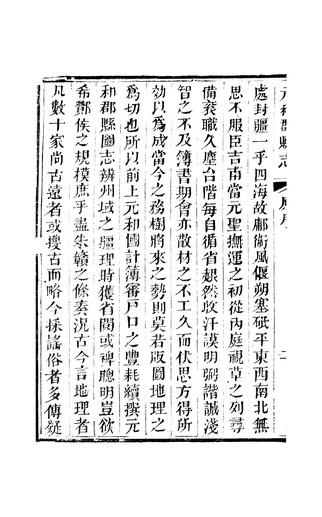 元和郡縣志 原序 二
處封疆一乎四海故鄜衛風偃朔塞砥平東西南北無
思不服臣吉甫當元聖撫運之初從內庭視草之列尋
備袞職久塵台階每自循省赧然收汗謨明弼諧誠淺
智之不及簿書期會亦散材之不工久而伏思方得所
效以為成當今之務樹將來之勢則莫若版圖地理之
為切也所以前上元和國計簿審戶口之豐耗續撰元
和郡縣圖志辨州域之疆理時獲省閱或裨聰明豈欲
希酇侯之規模庶乎盡朱贛之條奏況古今言地理者
凡數十家尚古遠者或搜古而略今採謠俗者多傳疑